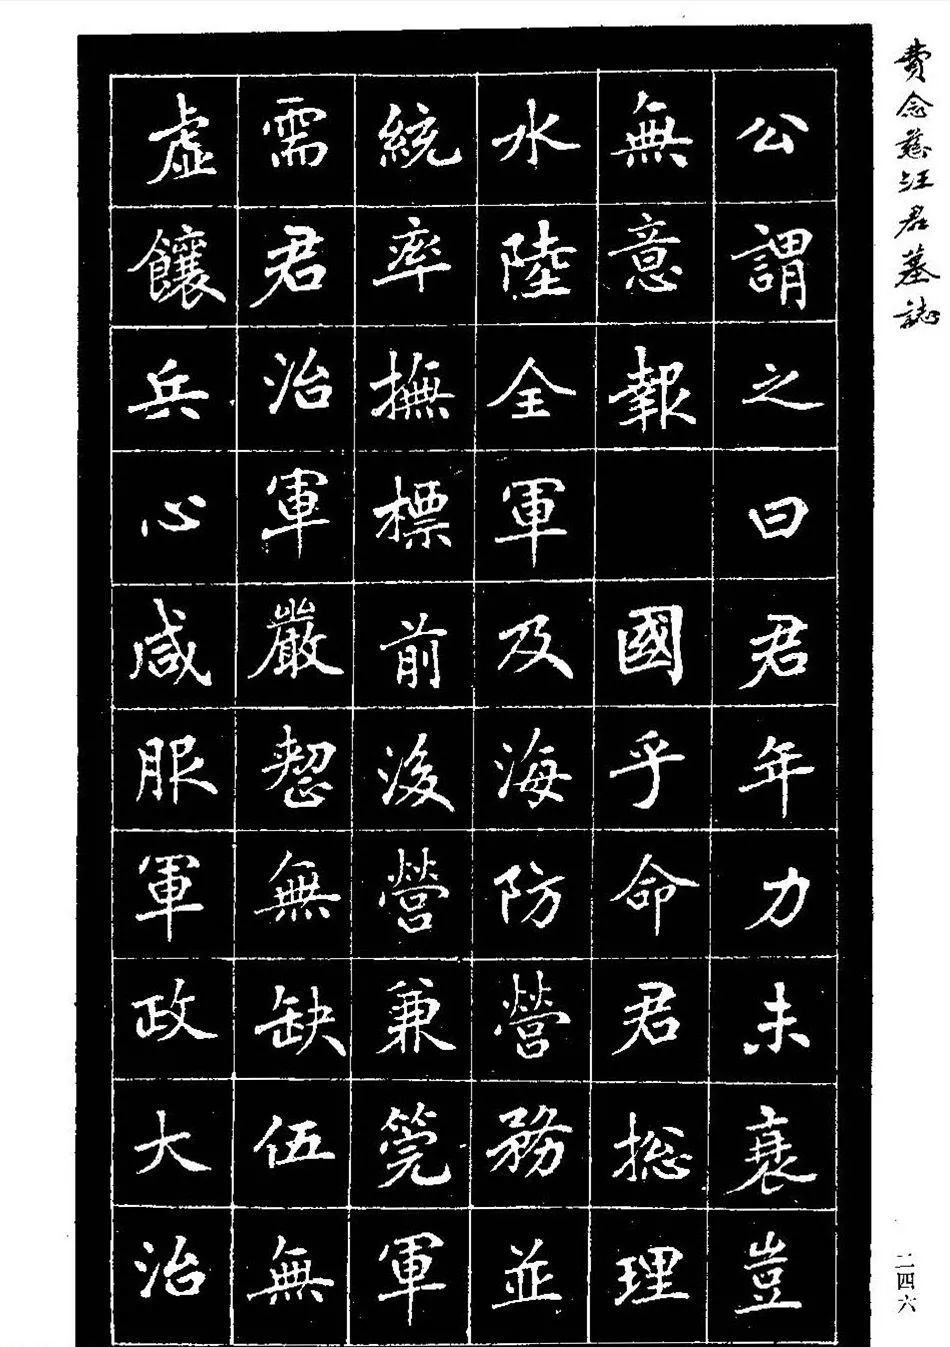 費念慈汪君墓誌
公謂之曰君年力未衰豈
無意報 國乎命君揔理
水陸全軍及海防營務並
統率撫標前後營兼筦軍
需君治軍嚴恝無缺伍無
虛饟兵心咸服軍政大治
二四六